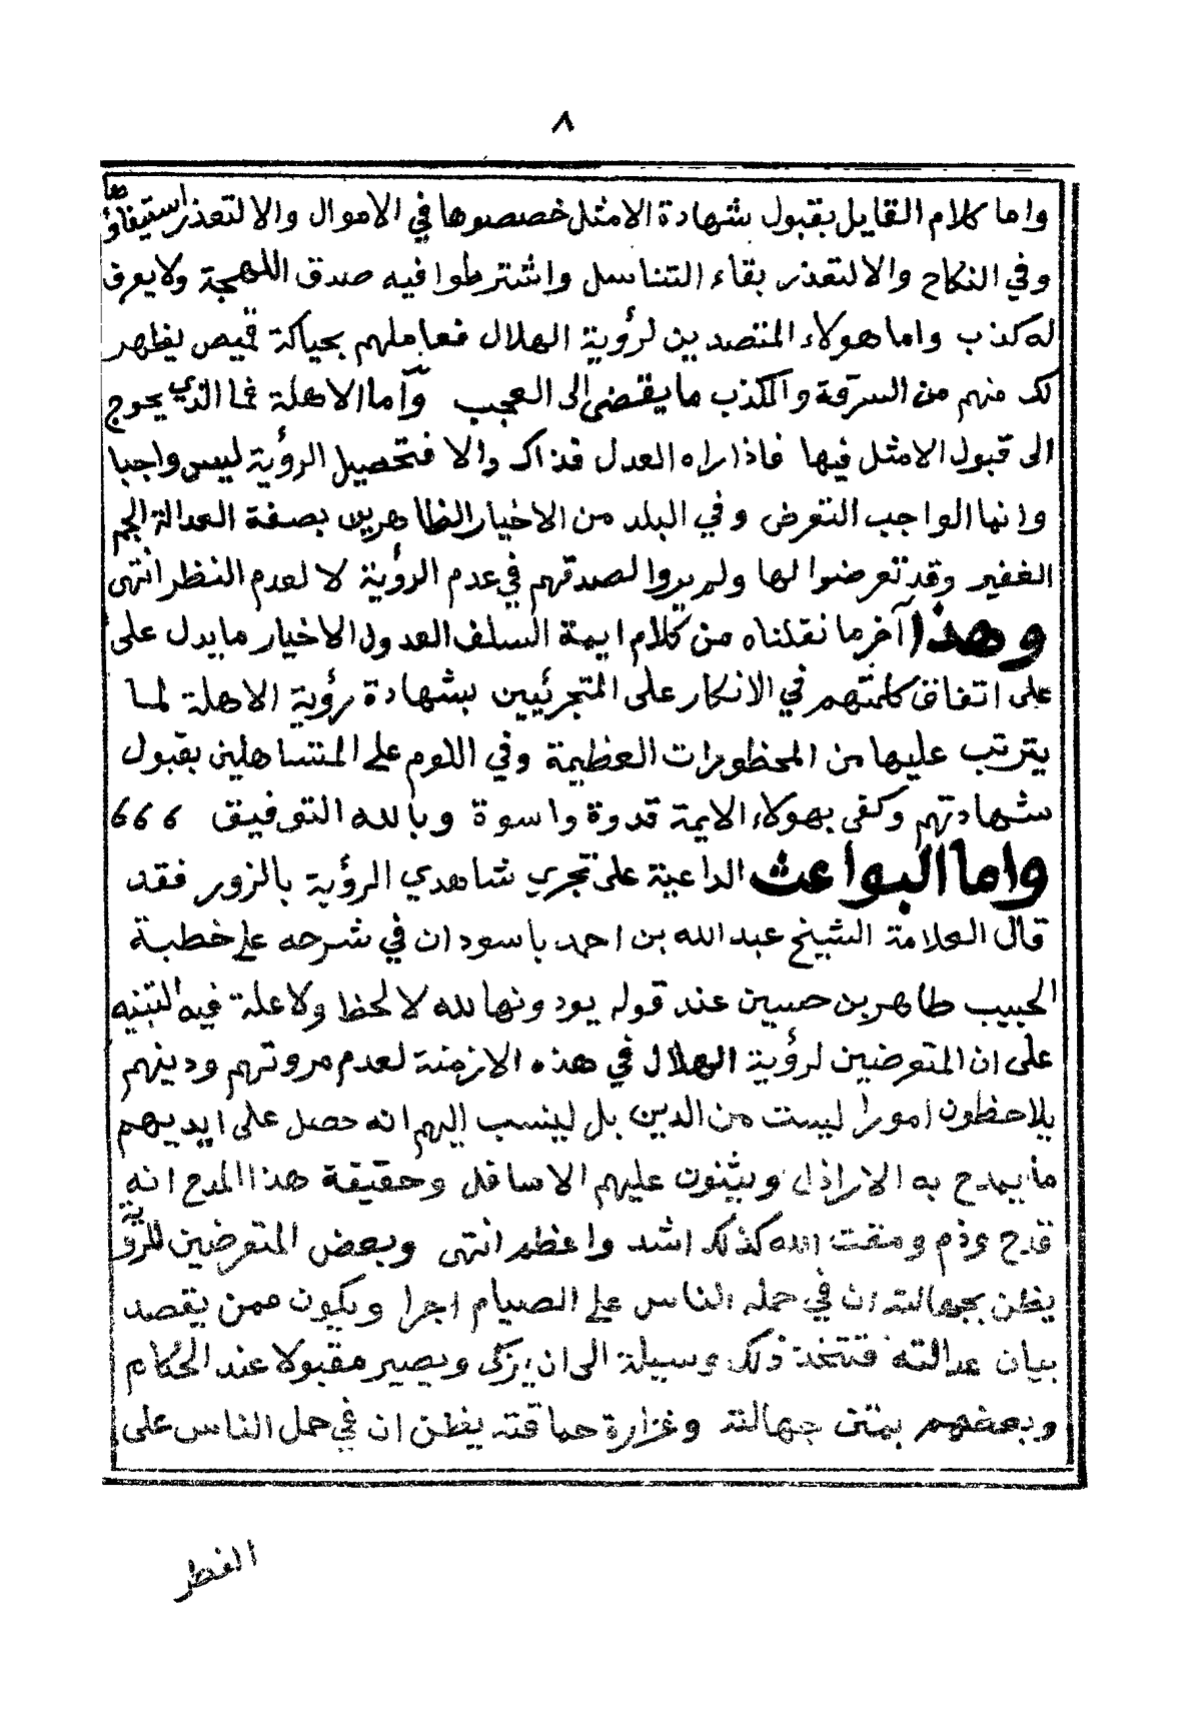 ٨
واما كلام القايل بقبول شهادة الامثل خصصوها في الاموال والا لتعذر استيفاؤها
وفي النكاح والا لتعذر بقاء التناسل واشترطوا فيه صدق اللهجة ولا يعرف
له كذب واما هولاء المتصدين لرؤية الهلال فعاملهم بحياكة قميص يظهر
لك منهم من السرقة والكذب ما يقضى الى العجب وآما الاهلة فما الذي يحوج
الى قبول الامثل فيها فاذا راه العدل فذاك والا فتحصيل الرؤية ليس واجبا
وانما الواجب التعرض وفي البلد من الاخيار الظاهرين بصفة العدالة الجم
الغفير وقد تعرضوا لها ولم يروا لصدقهم في عدم الرؤية لا لعدم النظر انتهى
وهذا آخر ما نقلناه من كلام ايمة السلف العدول الاخيار ما يدل على
على اتفاق كلمتهم في الانكار على المتجرئيين بشهادة رؤية الاهلة لما
يترتب عليها من المحظورات العظيمة وفي اللوم على المتساهلين بقبول
شهادتهم وكفى بهولاء الايمة قدوة واسوة وبالله التوفيق ٦ ٦ ٦
واما البواعث الداعية على تجري شاهدي الرؤية بالزور فقد
قال العلامة الشيخ عبد الله بن احمد باسودان في شرحه على خطبة
الحبيب طاهر بن حسين عند قوله يودونها لله لا لحظ ولا علة فيه التبنيه
على ان المتعرضين لرؤية الهلال في هذه الازمنة لعدم مروتهم ودينهم
يلاحظون امورا ليست من الدين بل لينسب اليهم انه حصل على ايديهم
ما يمدح به الاراذل ويثنون عليهم الاسافل وحقيقة هذا المدح انه
قدح وذم ومقت الله كذلك اشد واعظم انتهى وبعض المتعرضين للرؤية
يظن بجهالته ان في حمله الناس على الصيام اجرا ويكون ممن يقصد
بيان عدالته فتتخذ ذلك وسيلة الى ان يزكى ويصير مقبولا عند الحكام
وبعضهم بمتن جهالته وغزارة حماقته يظن ان في حمل الناس على
الفطر